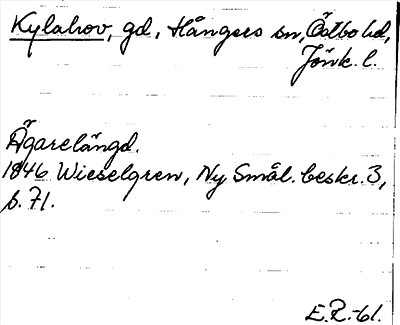 Kylahov, gd, Hångers sn, Östbo hd,
Jönk. l.
Ägarelängd.
1846 Wieselgren, Ny Smål. beskr. 3,
s. 71.
E.R.-61.